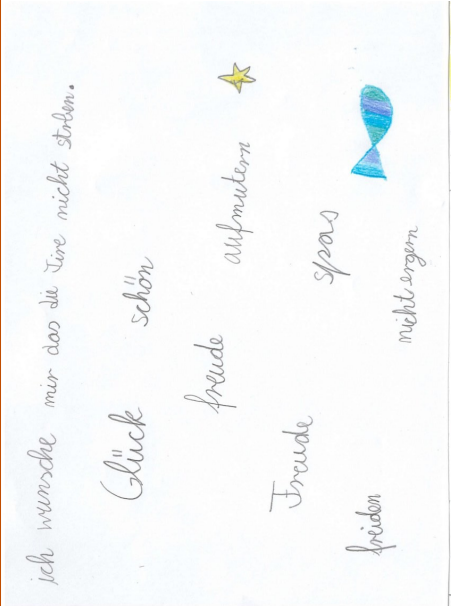 ich wunsche mir das die Tire nicht strben.
Glück schön
freude aufmutern
Freude spas
freiden nicht ergern